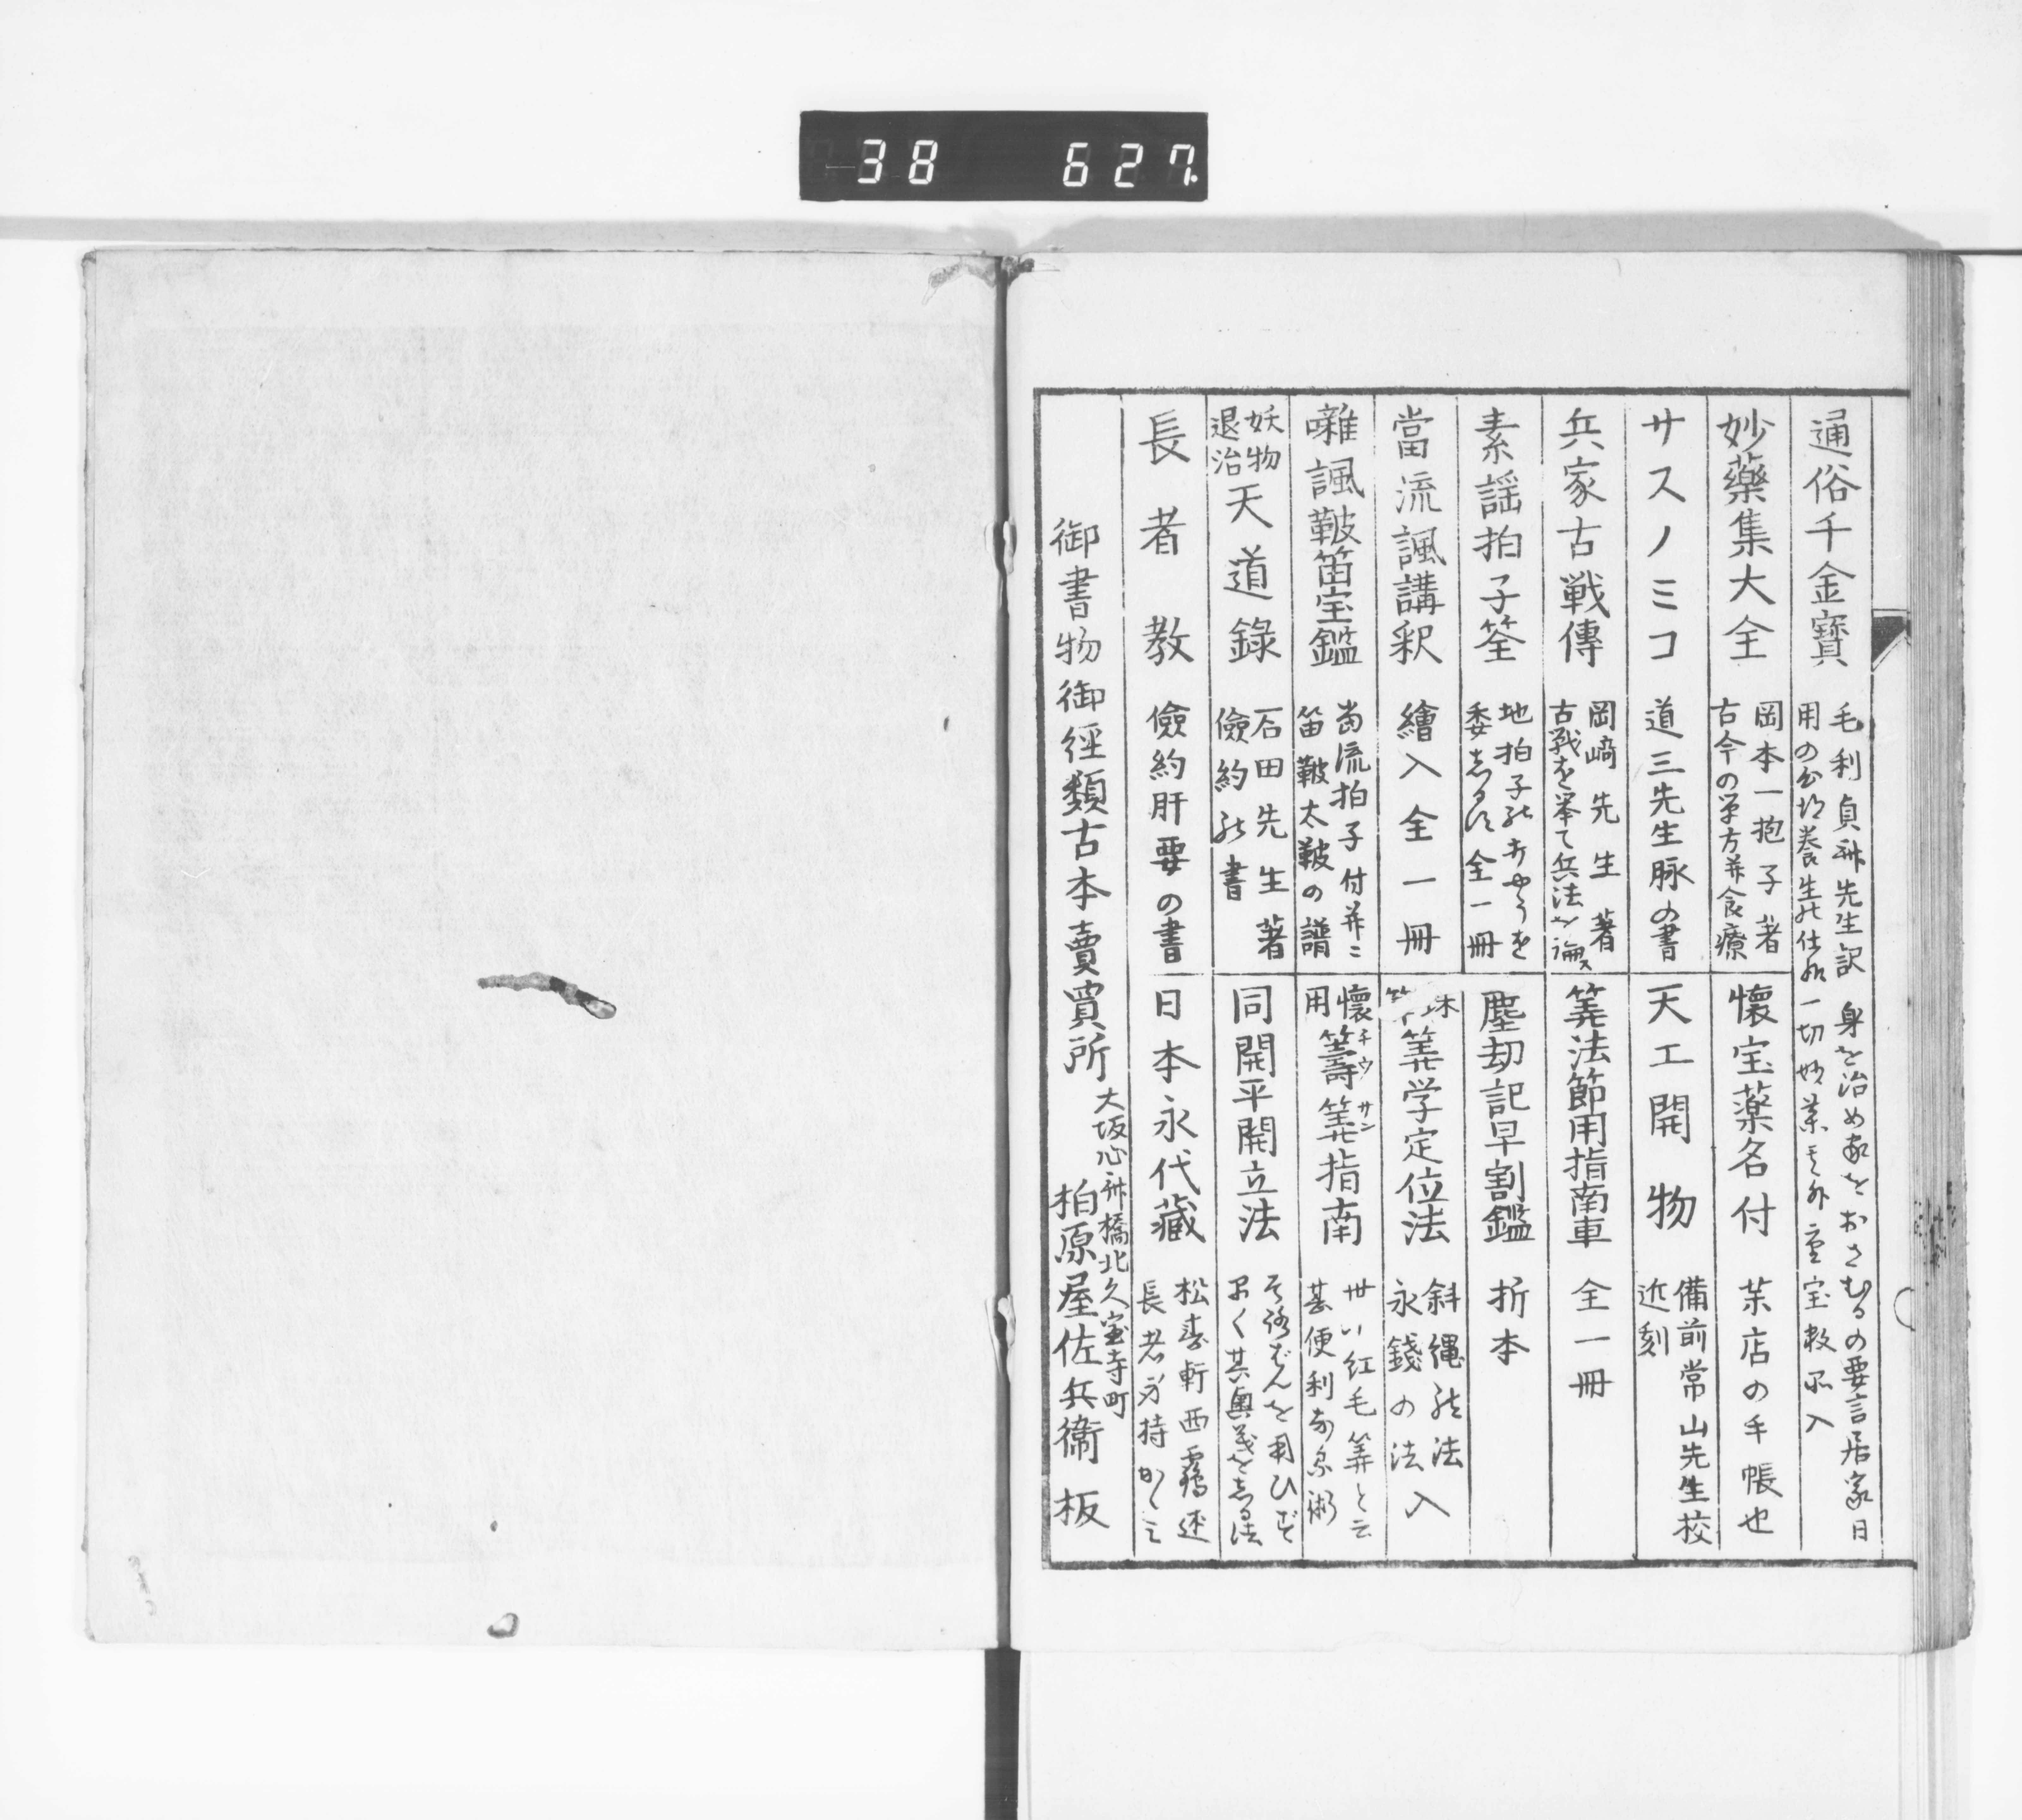 38 627
通俗千金寳
毛利貞斎先生訳 身を治め家をおさむるの要言居家日
用の 養生の仕 一切妙薬其外 宝数不入
妙藥集大全
岡本一抱子著
古今の単方并食療
懐宝薬名付
茶店の手帳也
サスノミコ
道三先生脉の書
天工開物
備前常山先生校
近刻
兵家古戦傳
岡﨑先生著
古戦を挙て兵法を論ス
筭法節用指南車
全一冊
素謡拍子筌
地拍子の打やうを
委しるす 全一冊
塵劫記早割鑑
折本
當流諷講釈
繪入全一冊
筭学定位法
斜縄の法
永錢の法入
囃諷鞁笛宝鑑
當流拍子付并ニ
笛鞁太鞁の譜
懐
用 籌筭指南
チウ サン
世ニ紅毛筭と云
甚便利なる術
妖物
退治 天道錄
石田先生著
儉約の書
同開平開立法
そろばんを用ひず
早く其奥義をしる法
長者教
儉約肝要の書
日本永代藏
松寿軒西鶴述
長者身持かゝミ
御書物御経類古本賣買所
大坂心斎橋北久宝寺町
柏原屋佐兵衞板